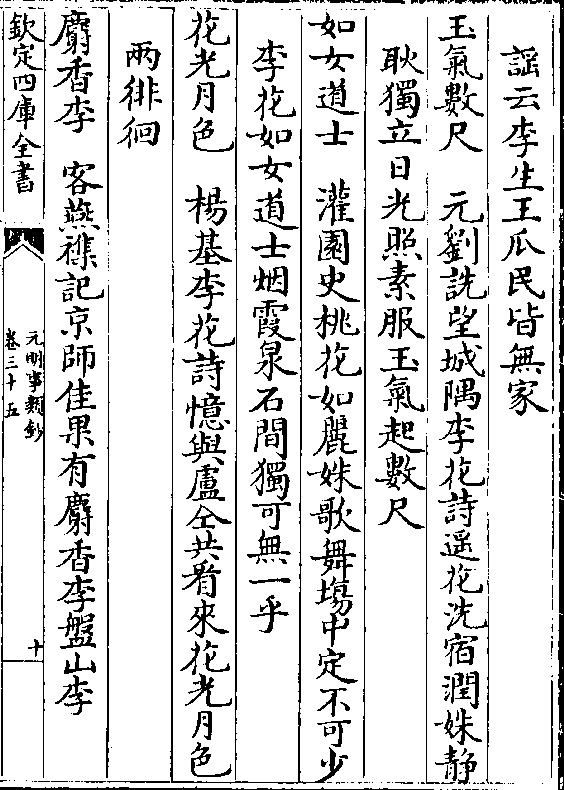 謡云李生王瓜民皆無家
玉氣數尺　元劉詵望城隅李花詩遥花洗宿潤姝靜
耿獨立日光照素服玉氣起數尺
如女道士　灌園史桃花如麗姝歌舞塲中定不可少
李花如女道士烟霞泉石間獨可無一乎
花光月色　楊基李花詩憶與盧仝共看來花光月色
兩徘徊
麝香李　客燕襍記京師佳果有麝香李盤山李
欽定四庫全書
元明事類鈔
卷三十五
十